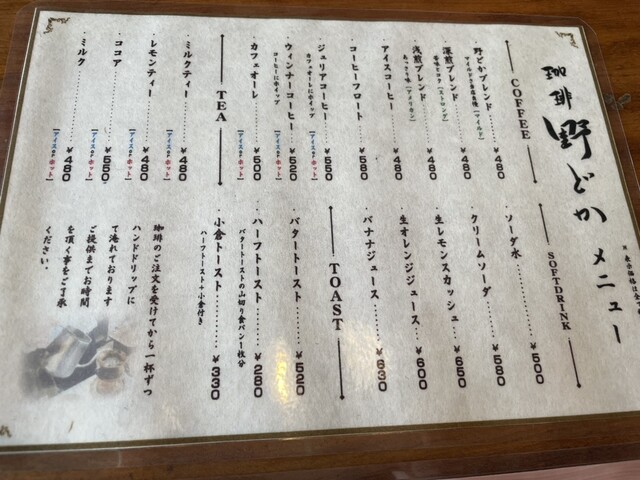 珈琲 野どか メニュー
COFFEE
・野どかブレンド ¥480
マイルドタイプ
・深煎ブレンド ¥480
・浅煎ブレンド ¥480
あっさり味(アメリカン)
・アイスコーヒー ¥480
・コーヒーフロート ¥580
・ジュリアコーヒー ¥550
カフェオーレにホイップ
・ウィンナーコーヒー ¥520
コーヒーにホイップ
・カフェオーレ ¥500
[アイスorホット]
TEA
・ミルクティー ¥480
[アイスorホット]
・レモンティー ¥480
[アイスorホット]
・ココア ¥550
[アイスorホット]
・ミルク ¥480
[アイスorホット]
SOFTDRINK
・ソーダ水 ¥500
・クリームソーダ ¥580
・生レモンスカッシュ ¥650
・生オレンジジュース ¥600
・バナナジュース ¥630
TOAST
・バタートースト ¥520
・ハーフトースト ¥280
バタートーストの山切り食パン1枚分
・小倉トースト ¥330
ハーフトースト+小倉付き
珈琲のご注文を受けてから一杯ずつ
ハンドドリップに
て淹れております
ご提供までお時間
を頂く事をご了承
ください。